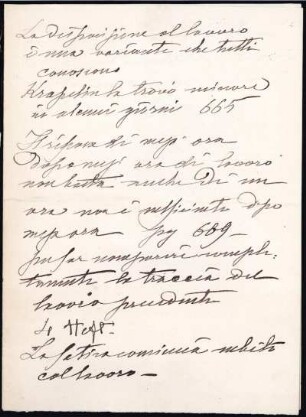 La disposizione al lavoro
è una variante che tutti
conoscono
Kräpelin la trovò minore
in alcuni giorni 665
Il riposo di mezz ora
dopo mezz ora di lavoro
non basta anche di un
ora non è sufficiente dopo
mezz ora pg 689 -
per far scomparire comple
tamente la traccia del
lavoro precedente
4 Heft -
La fatica comincia subito
col lavoro -